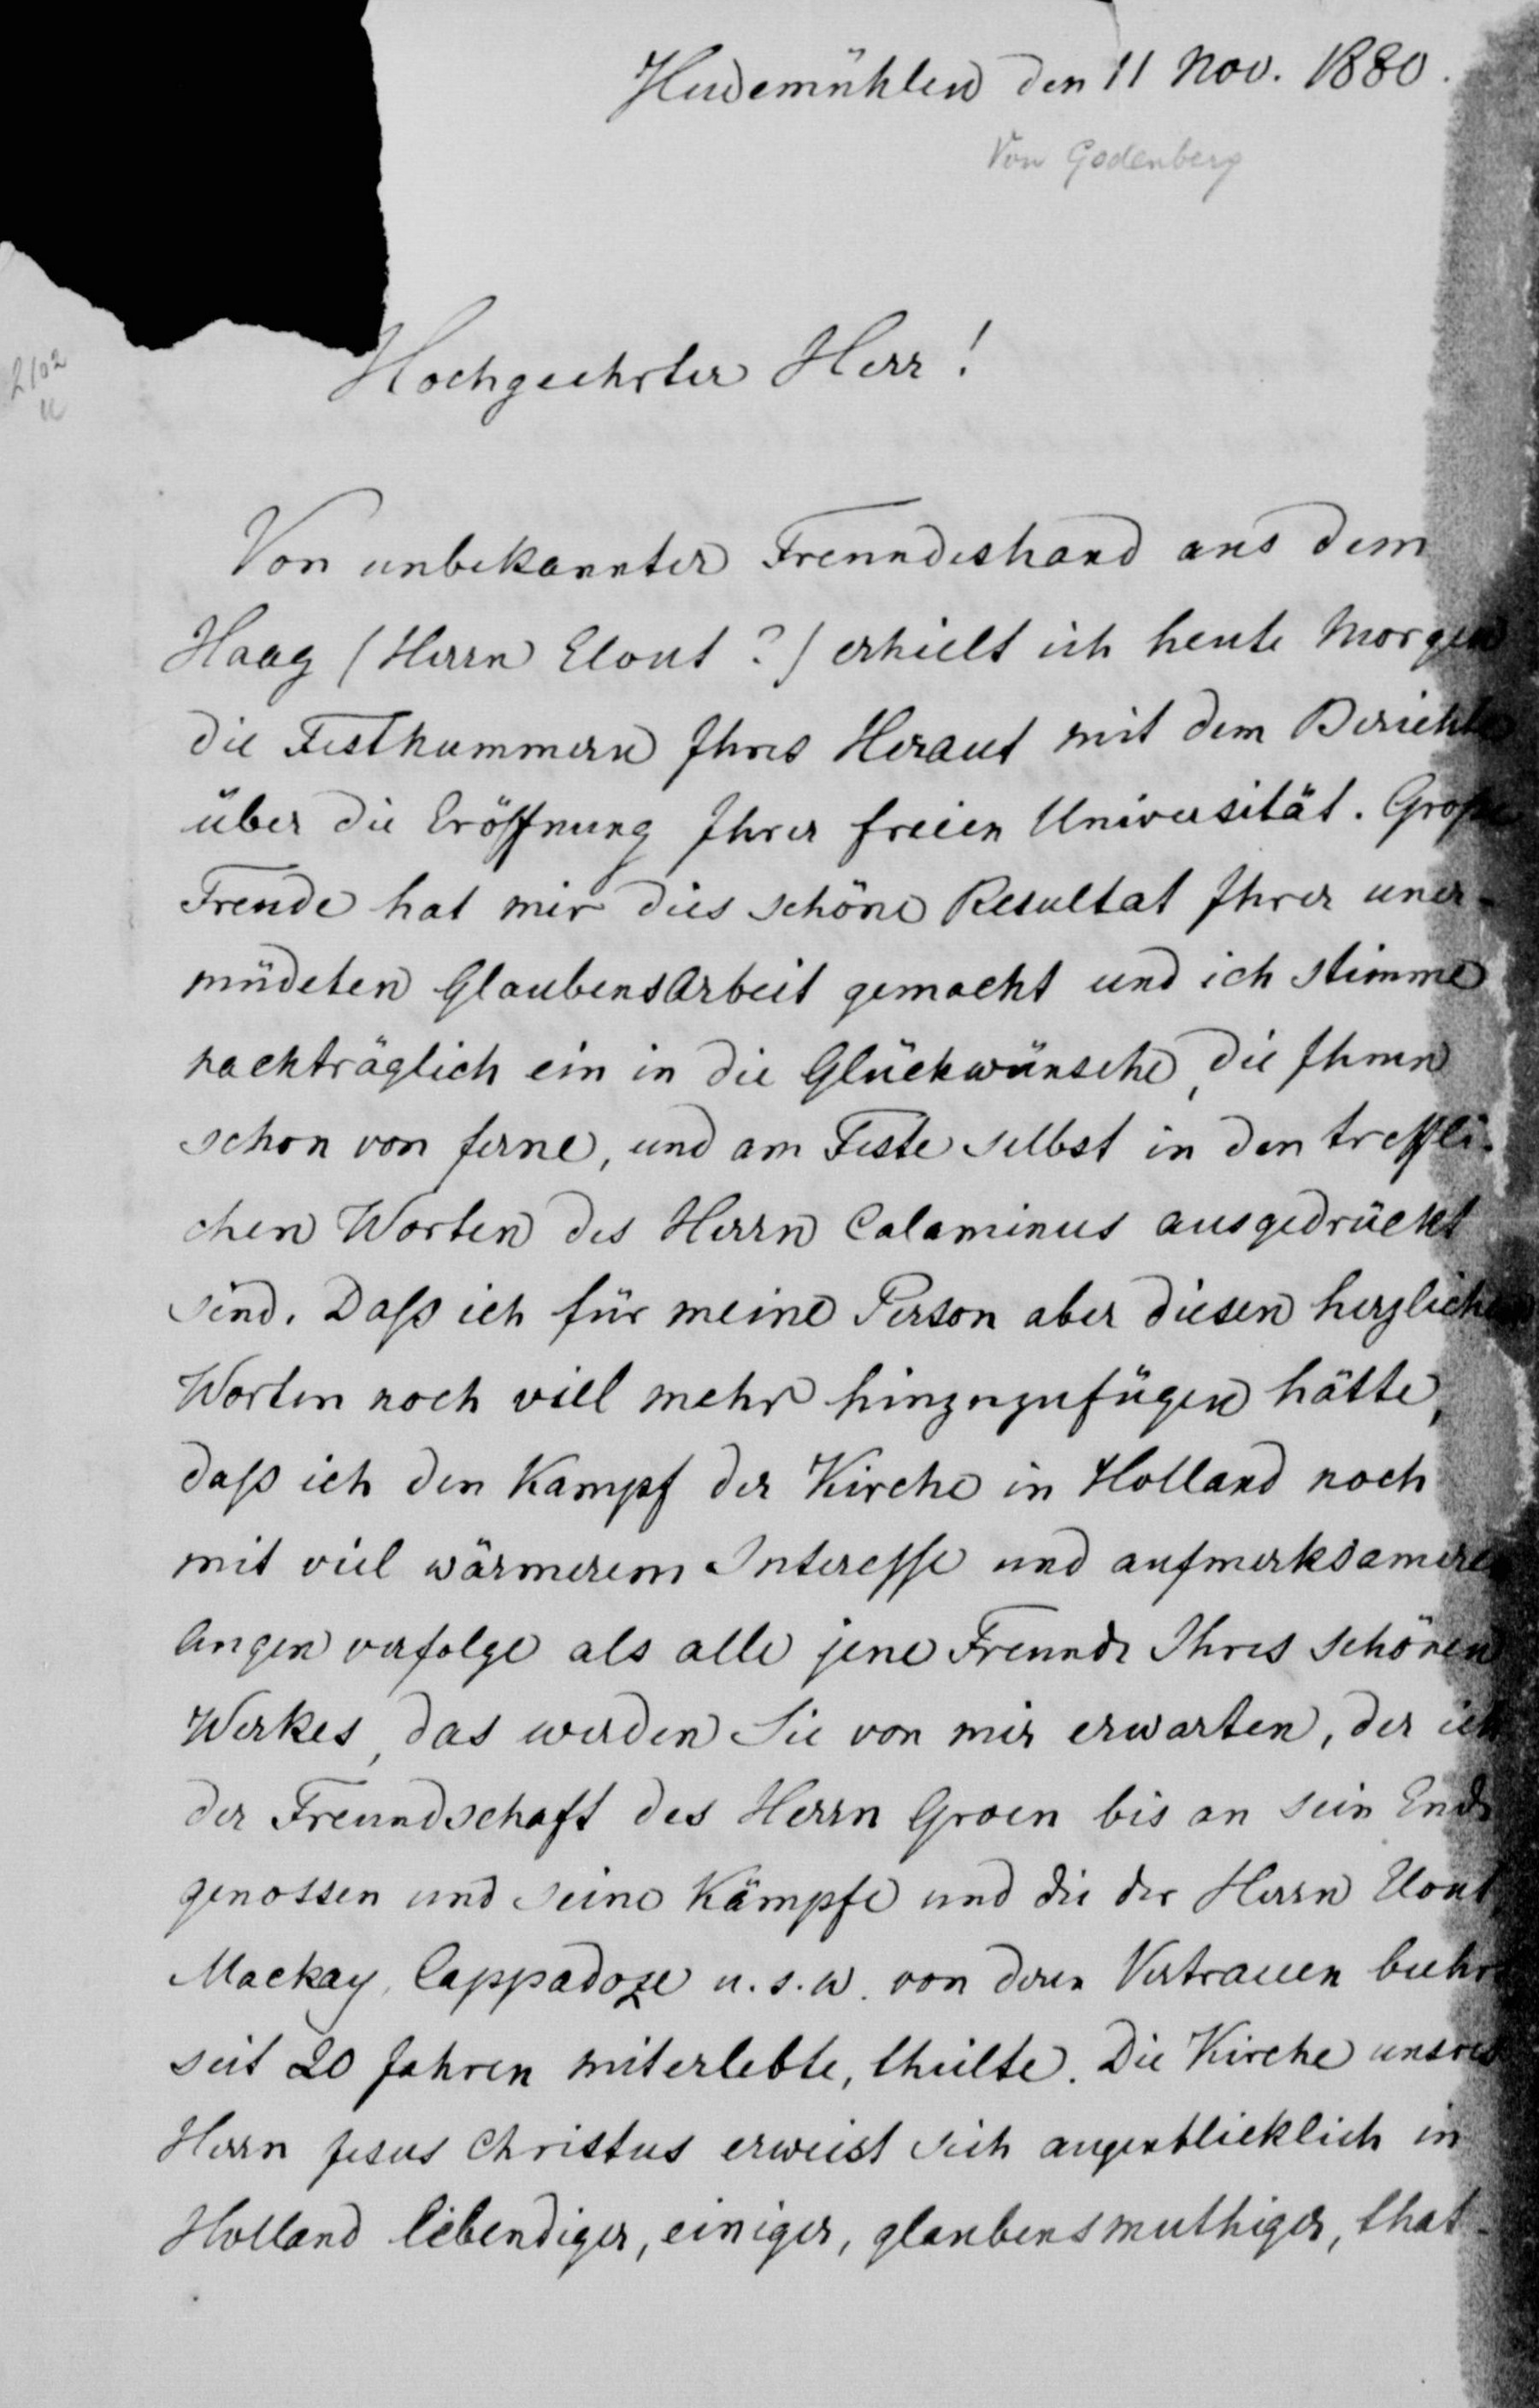 Hudemühlen den 11 Nov. 1880.
Von Godenberg
2102
Hochgeehrter Herr!
Von unbekannter Freundeshand aus dem
Haag (Herrn Elout?) erhielt ich heute Morgen
die Festnummern Ihres Heraut mit dem Berichte
über die Eröffnung Ihrer freien Universität. Große
Freude hat mir dies schöne Resultat Ihrer uner-
müdeten Glaubensarbeit gemacht und ich stimme
nachträglich ein in die Glückwünsche, die Ihnen
schon von ferne, und am Feste selbst in den treffli-
chen Worten des Herrn Calaminus ausgedrückt
sind. Daß ich für meine Person aber diesen herzlichen
Worten noch viell mehr hinzuzufügen hätte,
daß ich den Kampf der Kirche in Holland noch
mit viel wärmerem Interesse und aufmerksameren
Augen verfolge als alle jene Freunde Ihres schönen
Werkes, das werden Sie von mir erwarten, der ich
der Freundschaft des Herrn Groen bis an sein Ende
genossen und seine Kämpfe und die der Herrn Elout,
Mackay, Cappadoze u.s.w. von deren Vertrauen beehrt
seit 20 Jahren miterlebte, theilte. Die Kirche unsres
Herrn Jesus Christus erweist sich augenblicklich in
Holland lebendiger, einiger, glaubensmuthiger, that-